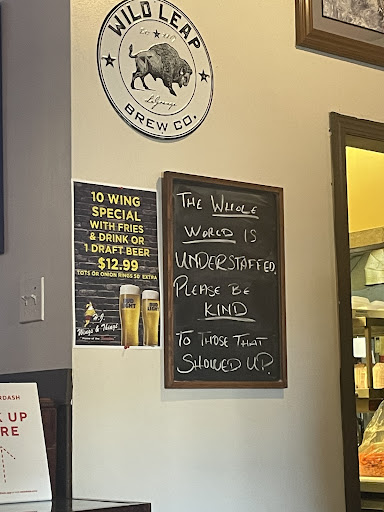 WILD LEAP
Co ★ UP
LaGrange
BREW CO.
10 WING
SPECIAL
WITH FRIES
& DRINK OR
1 DRAFT BEER
$12.99
TOTS OR ONION RINGS $0 EXTRA
Wings & Things
BUD
LIGHT
THE WHOLE
WORLD IS
UNDERSTAFFED.
PLEASE BE
KIND
TO THOSE THAT
SHOWED UP.
RDASH
K UP
RE